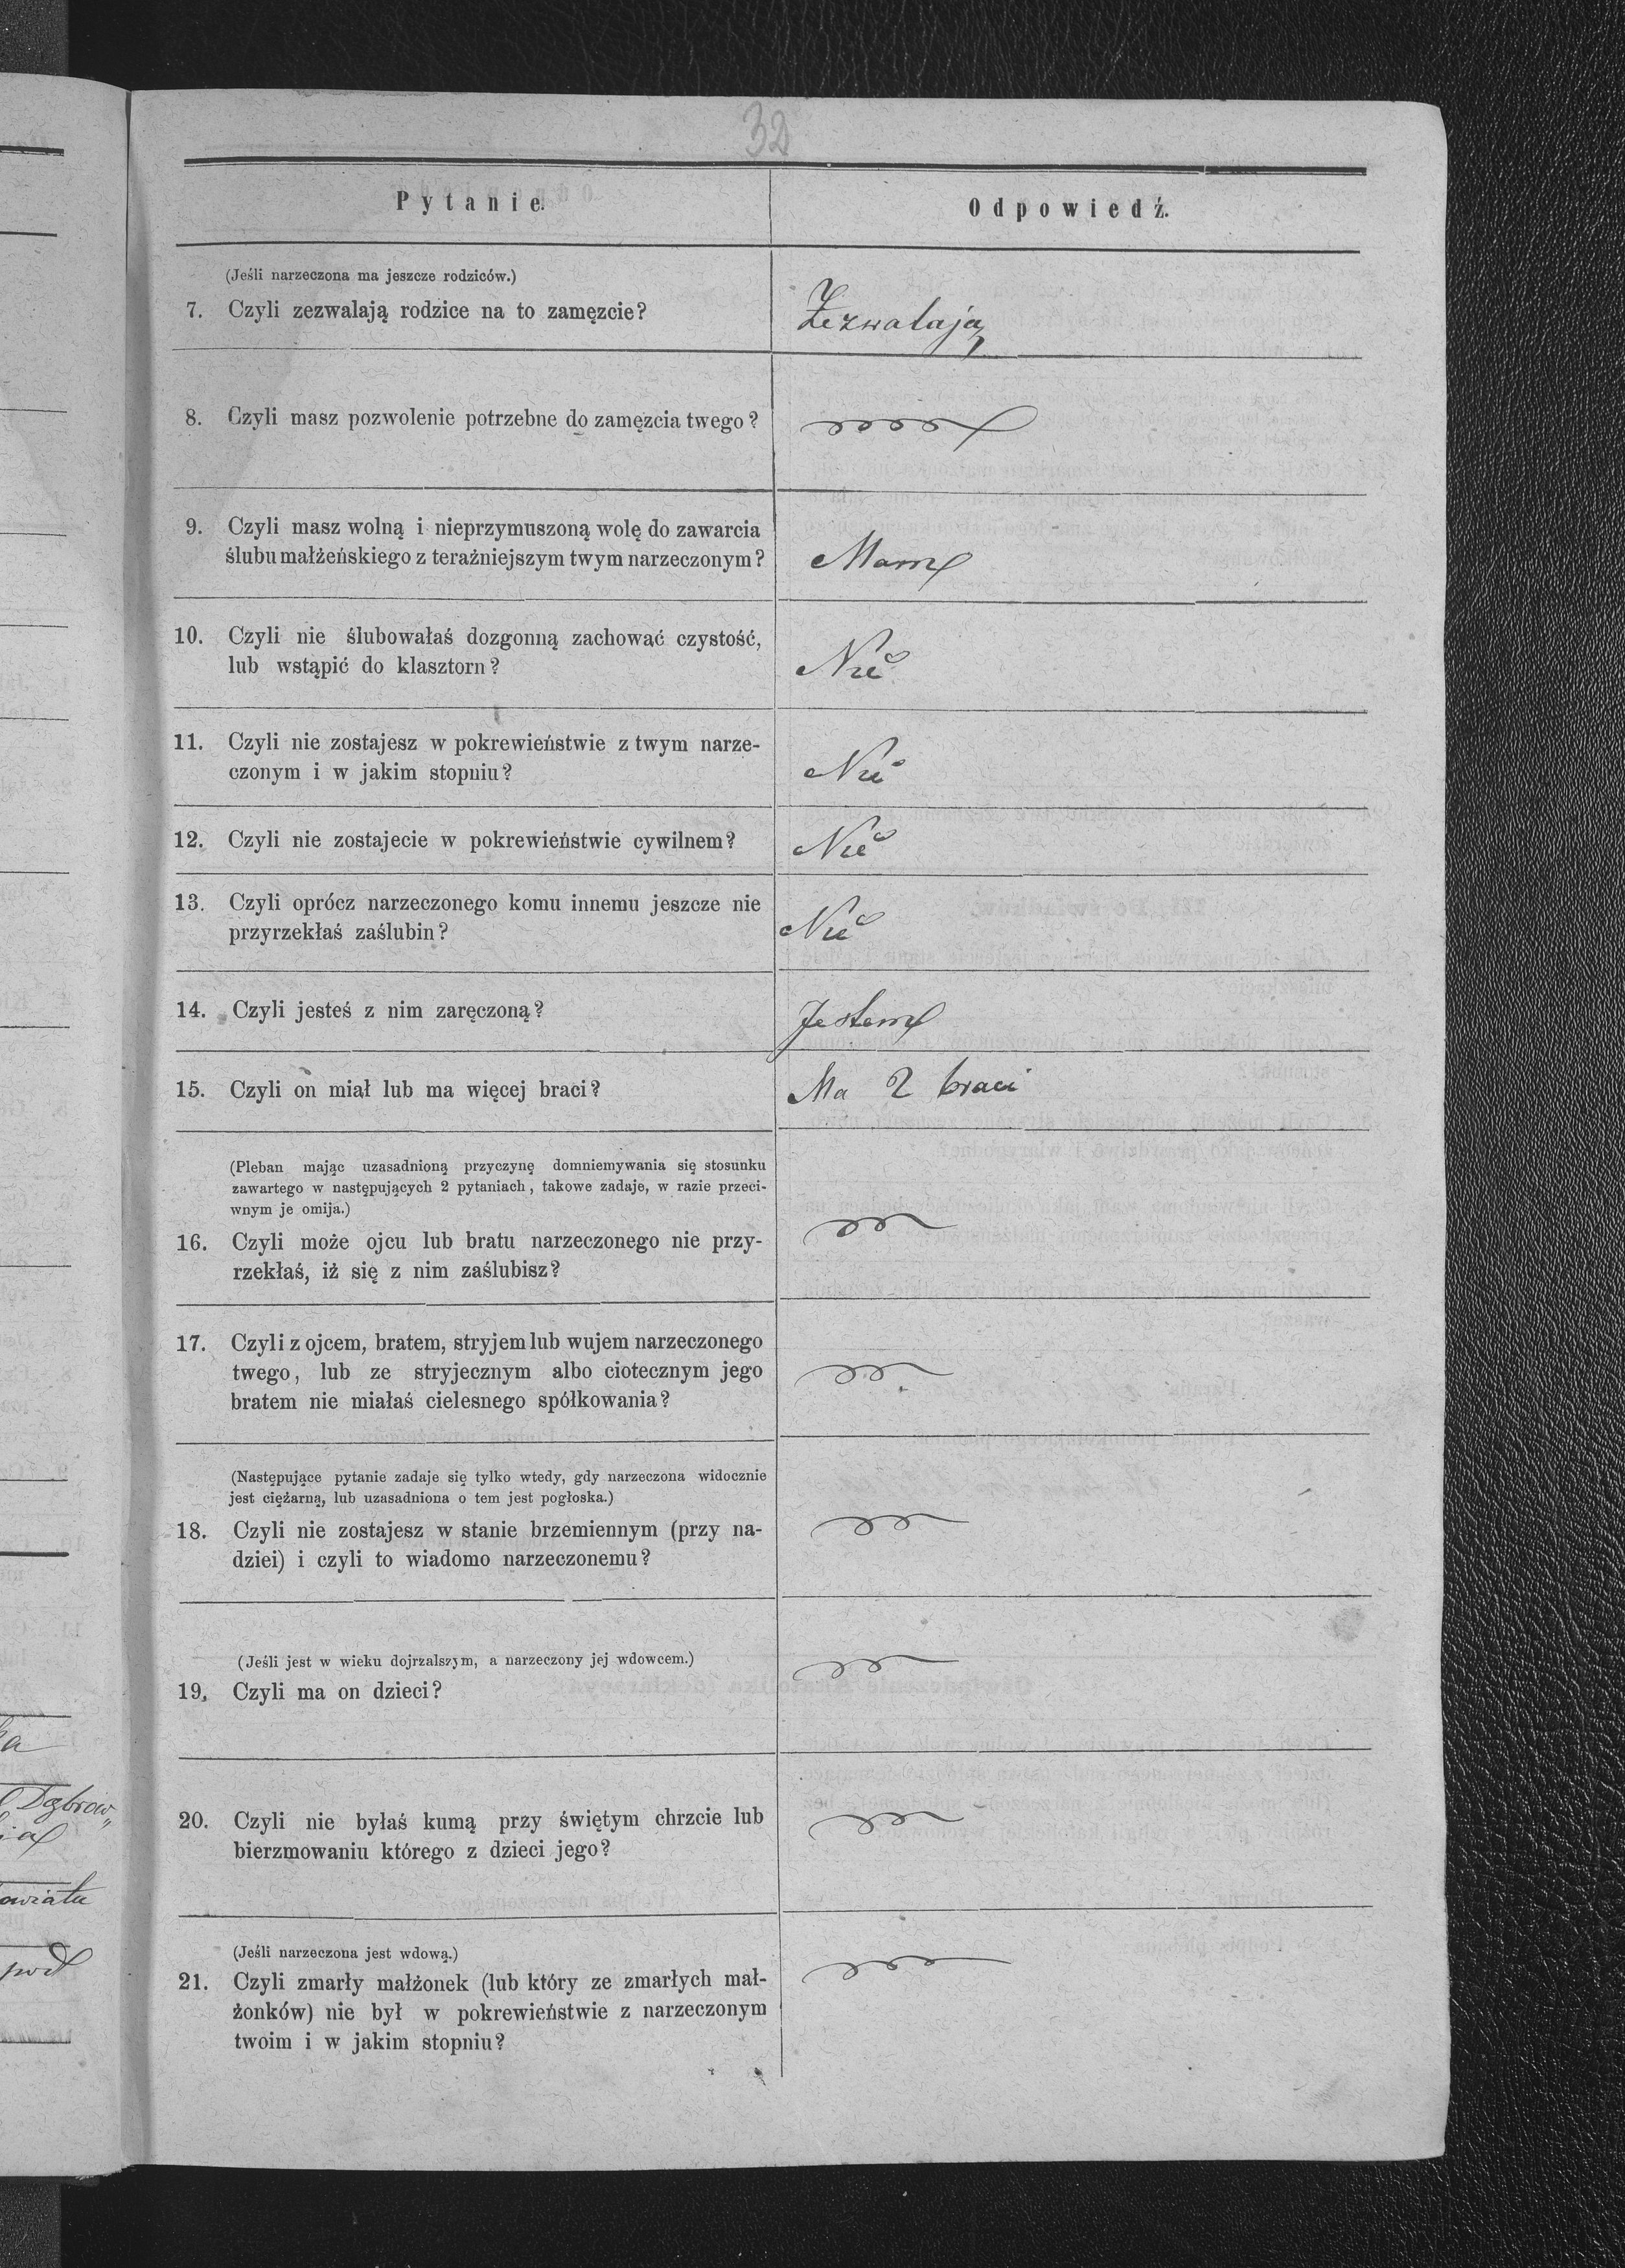 32
Pytanie. Odpowiedź.
(Jeśli narzeczona ma jeszcze rodziców.)
7. Czyli zezwalają rodzice na to zamęzcie? Zezwalają
8. Czyli masz pozwolenie potrzebne do zamęzcia twego?
9. Czyli masz wolną i nieprzymuszoną wolę do zawarcia
ślubu małżeńskiego z teraźniejszym twym narzeczonym? Mam
10. Czyli nie ślubowałaś dozgonną zachować czystość,
lub wstąpić do klasztorn? Nie
11. Czyli nie zostajesz w pokrewieństwie z twym narze-
czonym i w jakim stopniu? Nie
12. Czyli nie zostajecie w pokrewieństwie cywilnem? Nie
13. Czyli oprócz narzeczonego komu innemu jeszcze nie
przyrzekłaś zaślubin? Nie
14. Czyli jesteś z nim zaręczoną? Jestem
15. Czyli on miał lub ma więcej braci? Ma 2 braci
(Pleban mając uzasadnioną przyczynę domniemywania się stosunku
zawartego w następujących 2 pytaniach, takowe zadaje, w razie przeci-
wnym je omija.)
16. Czyli może ojcu lub bratu narzeczonego nie przy-
rzekłaś, iż się z nim zaślubisz?
17. Czyli z ojcem, bratem, stryjem lub wujem narzeczonego
twego, lub ze stryjecznym albo ciotecznym jego
bratem nie miałaś cielesnego spółkowania?
(Następujące pytanie zadaje się tylko wtedy, gdy narzeczona widocznie
jest ciężarną, lub uzasadniona o tem jest pogłoska.)
18. Czyli nie zostajesz w stanie brzemiennym (przy na-
dziei) i czyli to wiadomo narzeczonemu?
(Jeśli jest w wieku dojrzalszym, a narzeczony jej wdowcem.)
19. Czyli ma on dzieci?
20. Czyli nie byłaś kumą przy świętym chrzcie lub
bierzmowaniu którego z dzieci jego?
(Jeśli narzeczona jest wdową.)
21. Czyli zmarły małżonek (lub który ze zmarłych mał-
żonków) nie był w pokrewieństwie z narzeczonym
twoim i w jakim stopniu?